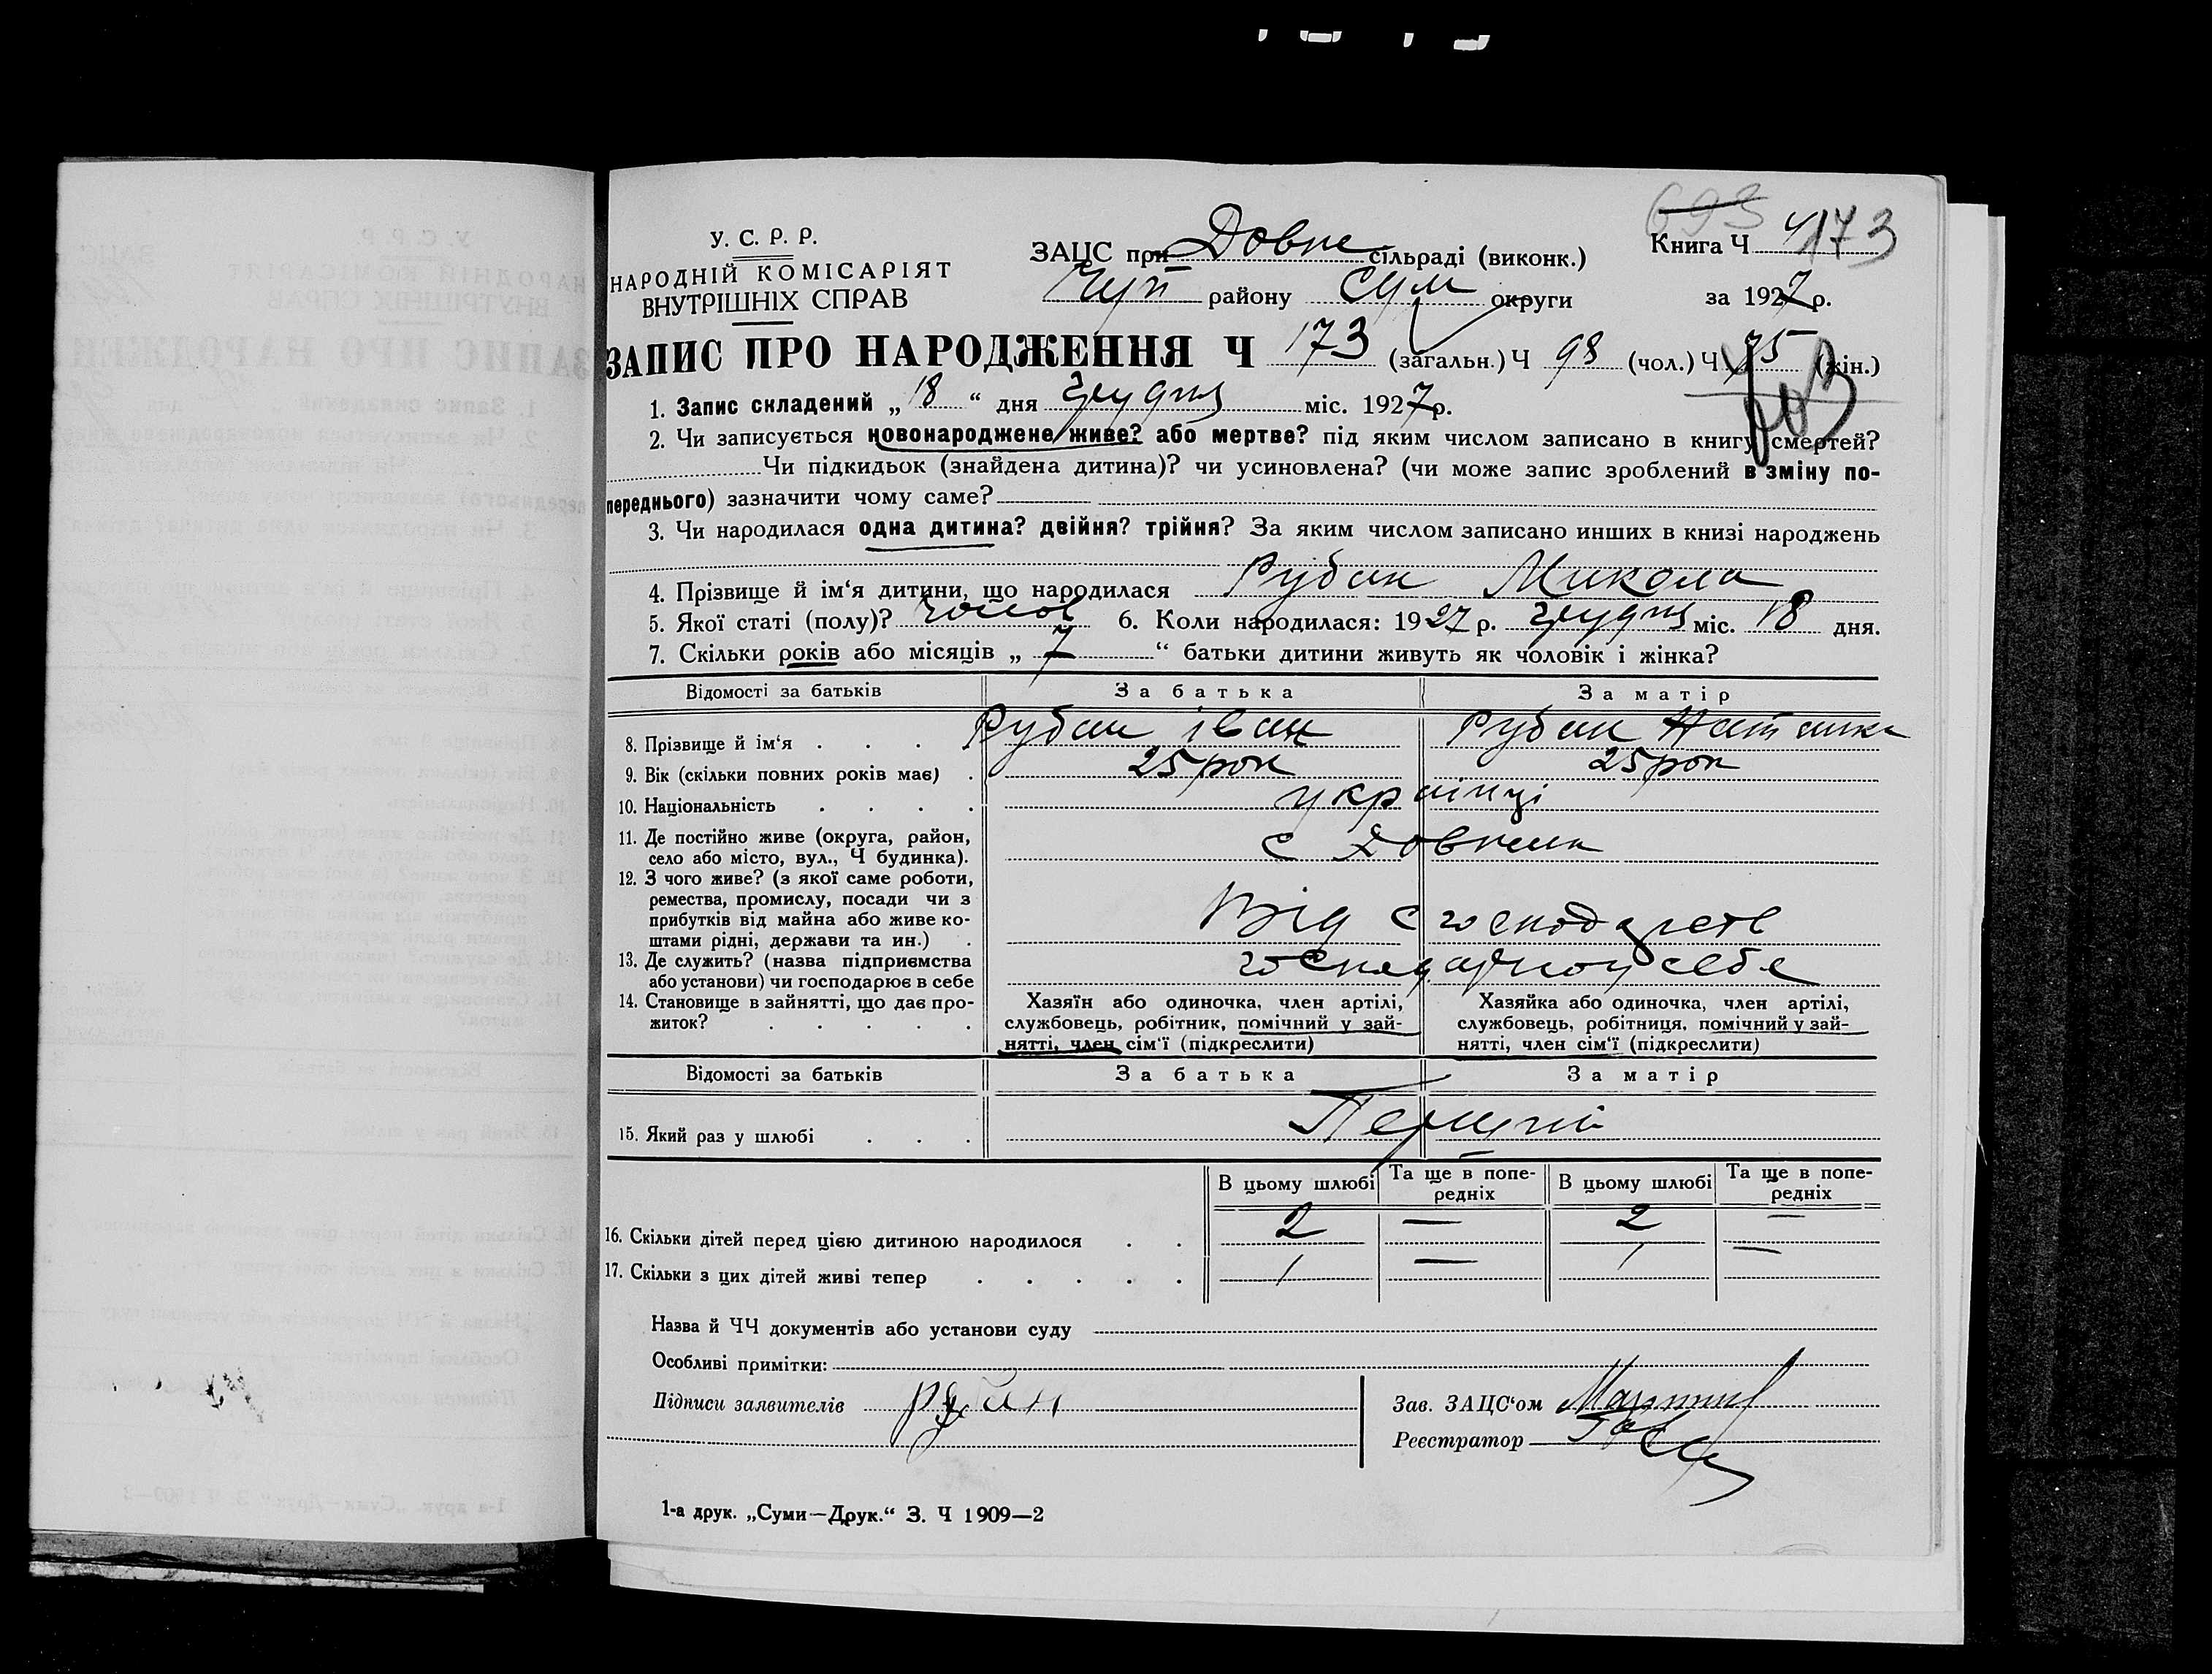 У. С. Р. Р.
НАРОДНІЙ КОМІСАРІЯТ
ВНУТРІШНІХ СПРАВ
ЗАЦС при Довж сільраді (виконк.)
району Сум округи
693
Книга Ч 4 173
за 1927 р.
ЗАПИС ПРО НАРОДЖЕННЯ Ч 173 (загальн.) Ч 98 (чол.) Ч 75 (жін.)
1. Запис складений „ 18 “ дня грудня міс. 1927 р.
2. Чи записується новонароджене живе? або мертве? під яким числом записано в книгу смертей?
Чи підкидьок (знайдена дитина)? чи усиновлена? (чи може запис зроблений в зміну по-
переднього) зазначити чому саме?
3. Чи народилася одна дитина? двійня? трійня? За яким числом записано инших в книзі народжень
4. Прізвище й ім‘я дитини, що народилася Рубан Микола
5. Якої статі (полу)? чолов 6. Коли народилася: 1927 р. грудня міс. 18 дня.
7. Скільки років або місяців „ 7 “ батьки дитини живуть як чоловік і жінка?
Відомості за батьків За батька За матір
8. Прізвище й ім‘я . . . Рубан іван Рубан
9. Вік (скільки повних років має) . 25 рок 25 рок
10. Національність . . . . українці
11. Де постійно живе (округа, район,
село або місто, вул., Ч будинка). с Довжик
12. З чого живе? (з якої саме роботи,
ремества, промислу, посади чи з
прибутків від майна або живе ко-
штами рідні, держави та ин.) . Від с господарств
13. Де служить? (назва підприємства
або установи) чи господарює в себе
14. Становище в зайнятті, що дає про-
житок? . . . . .
Хазяїн або одиночка, член артілі,
службовець, робітник, помічний у зай-
нятті, член сім‘ї (підкреслити)
Хазяйка або одиночка, член артілі,
службовець, робітниця, помічний у зай-
нятті, член сім‘ї (підкреслити)
Відомості за батьків За батька За матір
15. Який раз у шлюбі . . . Перший
В цьому шлюбі Та ще в попе-редніх В цьому шлюбі Та ще в попе-редніх
16. Скільки дітей перед цією дитиною народилося . . 2 — 2 —
17. Скільки з цих дітей живі тепер . . . . . 1 — 1 —
Назва й ЧЧ документів або установи суду
Особливі примітки:
Підписи заявителів Рубан
Зав. ЗАЦС‘ом
Реєстратор
1-а друк. „Суми—Друк.“ З. Ч 1909—2